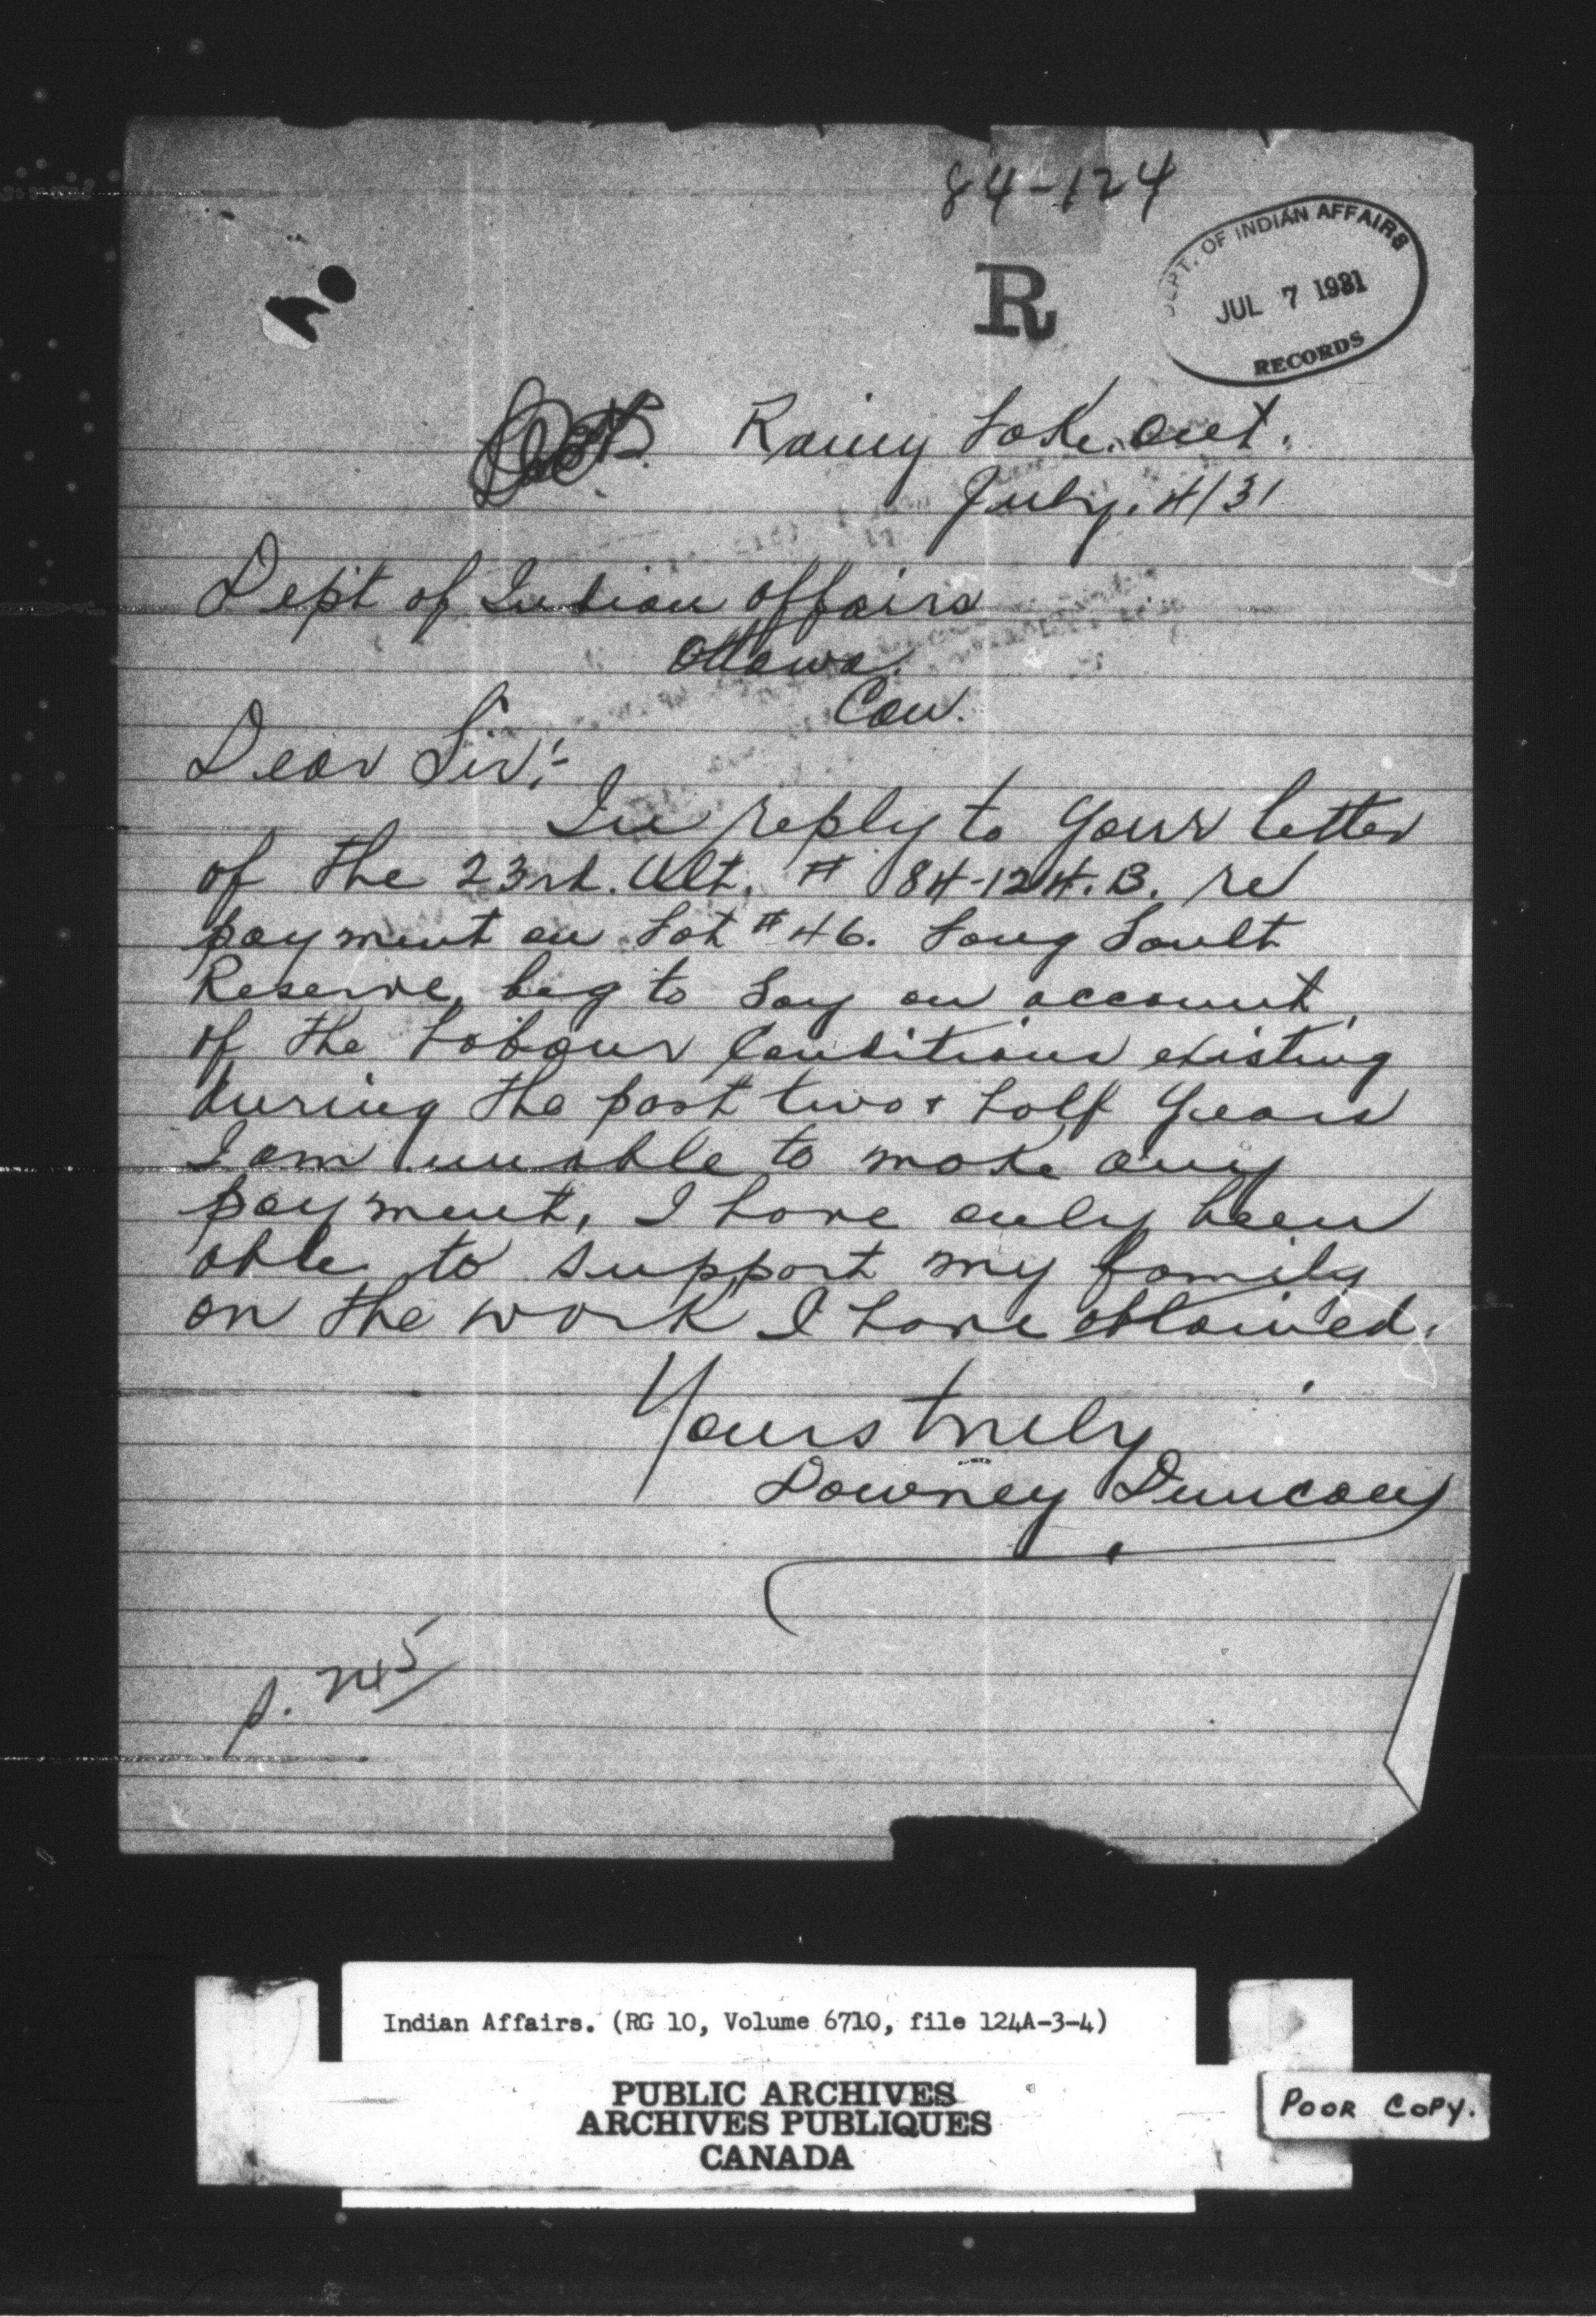 84-124
R
DEPT. OF INDIAN AFFAIRS
JUL 7 1931
RECORDS
Rainy Lake. Ont.
July. 4/31
Dept of Indian Affairs
Ottawa.
Can.
Dear Sir:-
In reply to your letter
of the 23rd. Ult. # 84-124.B. re
payment on Lot #46. Long Sault
Reserve, beg to say on account
of the Labour Conditions existing
during the past two & half years
I am unable to make any
payment, I have only been
able to support my family
on the work I have obtained.
Yours truly
Downey Duncan
p.
Indian Affairs. (RG 10, Volume 6710, file 124A-3-4)
PUBLIC ARCHIVES
ARCHIVES PUBLIQUES
CANADA
POOR COPY.